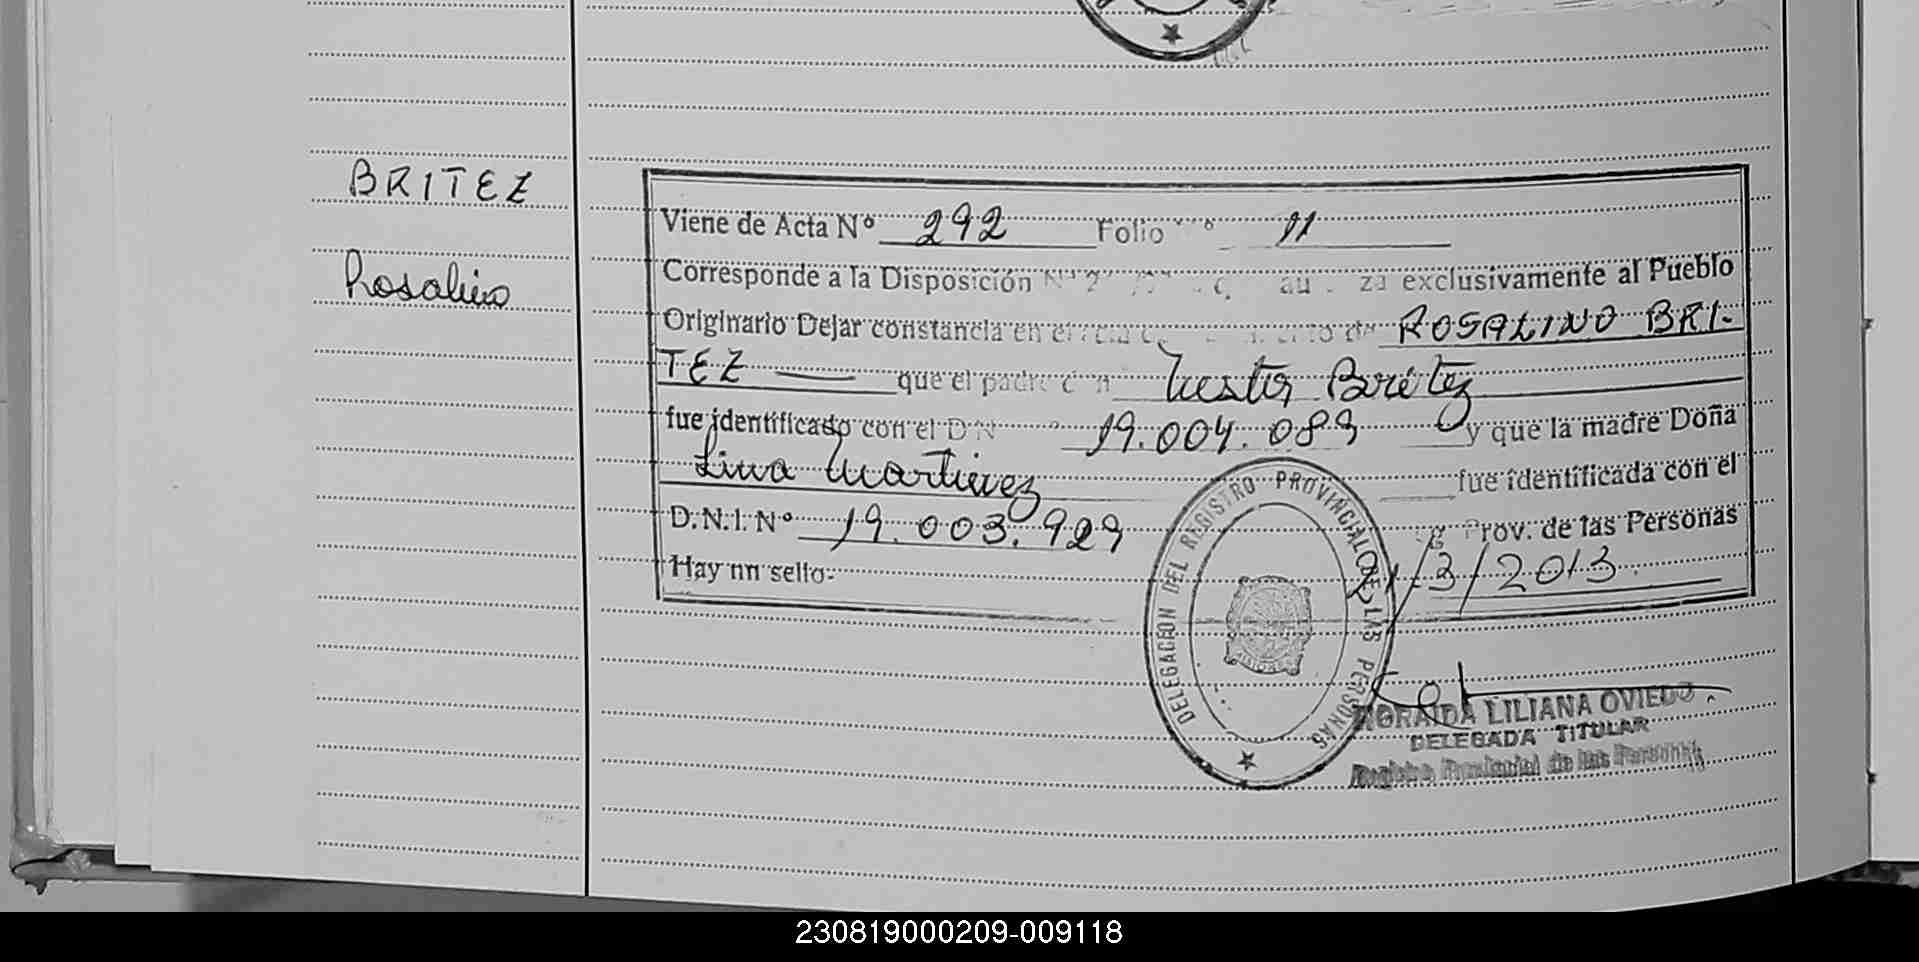 BRITEZ
Rosalino
Viene de Acta Nº 292 Folio º 91
Corresponde a la Disposición exclusivamente al Pueblo
Originario Dejar constancia en el ROSALINO BRI-
TEZ — que el padre don Nestor Britez
fue identificado con el DN 19.004.089 y que la madre Doña
Lina Martinez fue identificada con el
D.N.I. Nº 19.003.929 Prov. de las Personas
Hay un sello- 21/3/2013
DELEGACION DEL REGISTRO PROVINCIAL DE LAS PERSONAS
LILIANA OVIEDO
DELEGADA TITULAR
Registro Provincial de las Personas
230819000209-009118